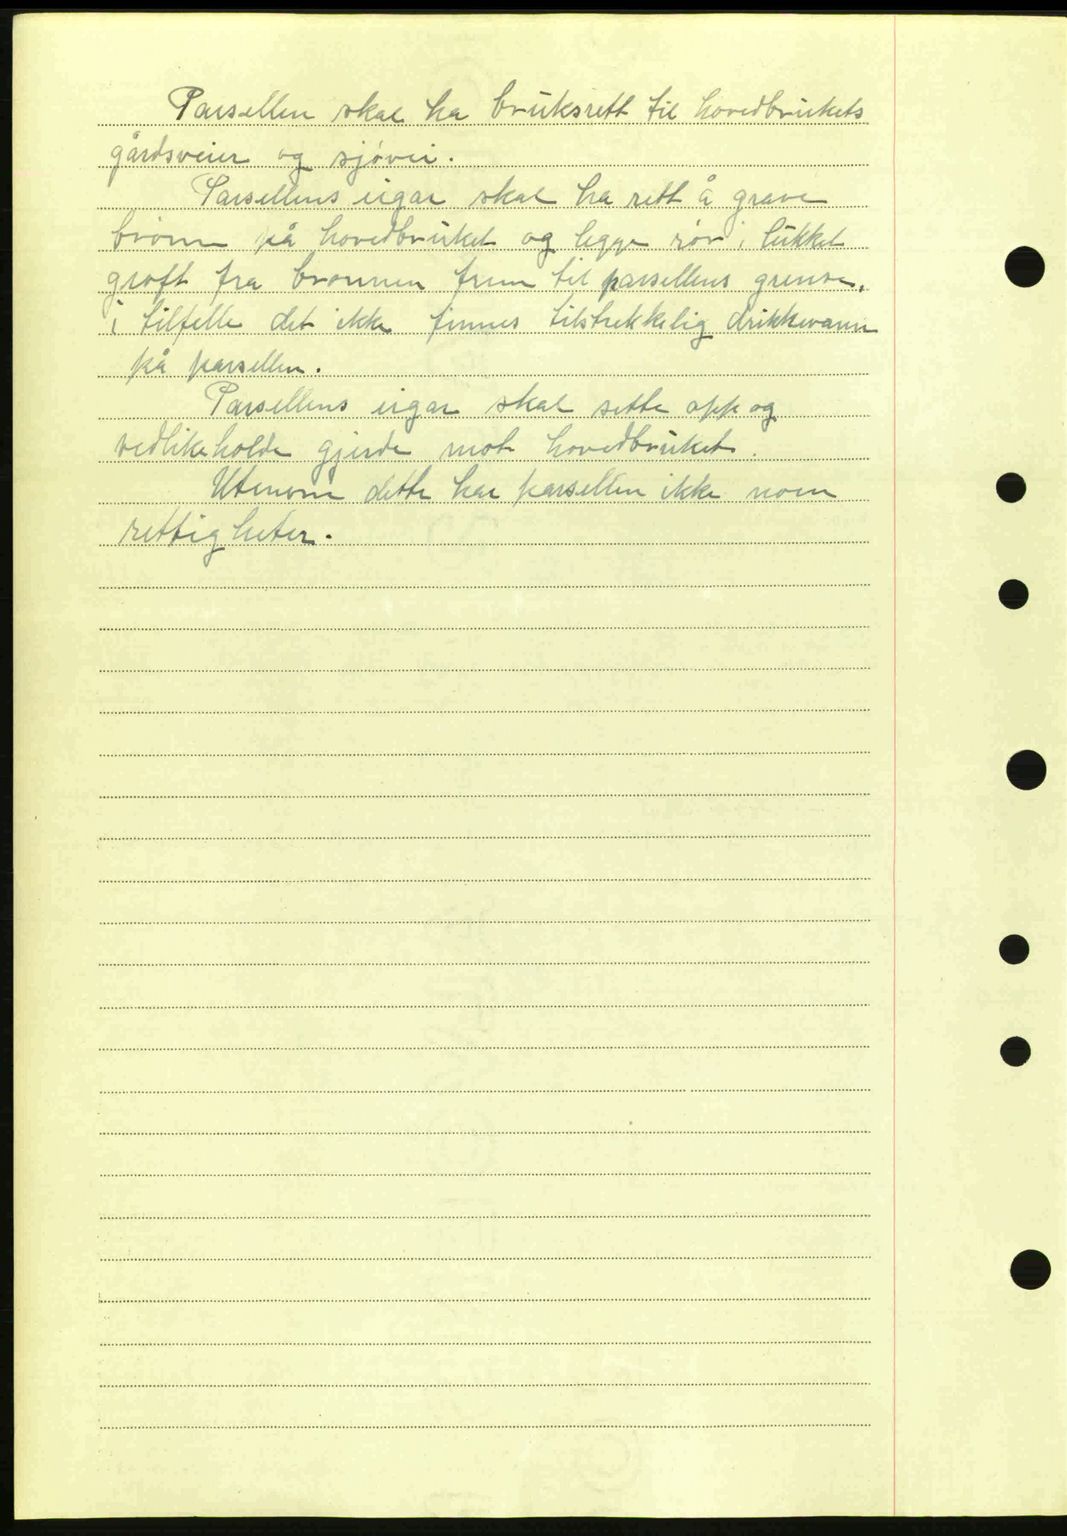 Parsellen skal ha bruksrett til hovedbrukets
gårdsveier og sjøvei.
Parsellens eigar skal ha rett å grave
brønn på hovedbruket og legge rør i lukket
grøft fra brønnen frem til parsellens grense,
i tilfelle det ikke finnes tilstrekkelig drikkevann
på parsellen.
Parsellens eigar skal sette opp og
vedlikeholde gjerde mot hovedbruket.
Utenom dette har parsellen ikke noen
rettigheter.